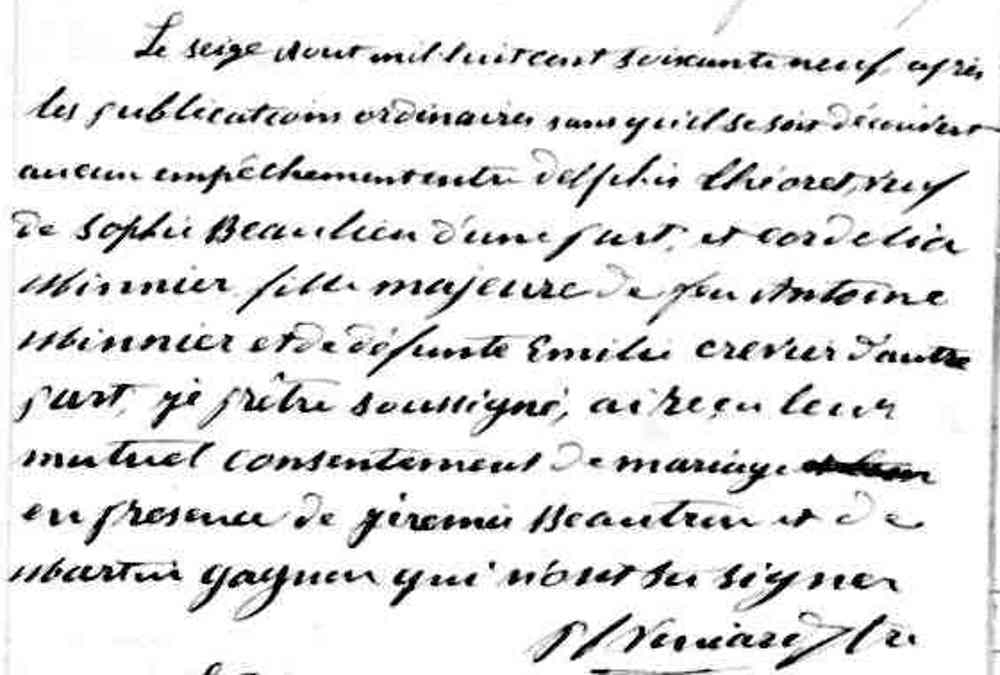 Le seize aout mil huit cent soixante neuf, après
les publications ordinaires sans qu'il se soit découvert
aucun empêchement entre Delphis Théoret, veuf
de Sophie Beaulieu d'une part, et Cordelia
Minnier fille majeure de feu Antoine
Minnier et de défunte Emilie Crevier d'autre
part, je prêtre soussigné, ai reçu leur
mutuel consentement de mariage
en presence de jéremie Beautron et de
Martin gagnon qui n'ont su signer
ptre